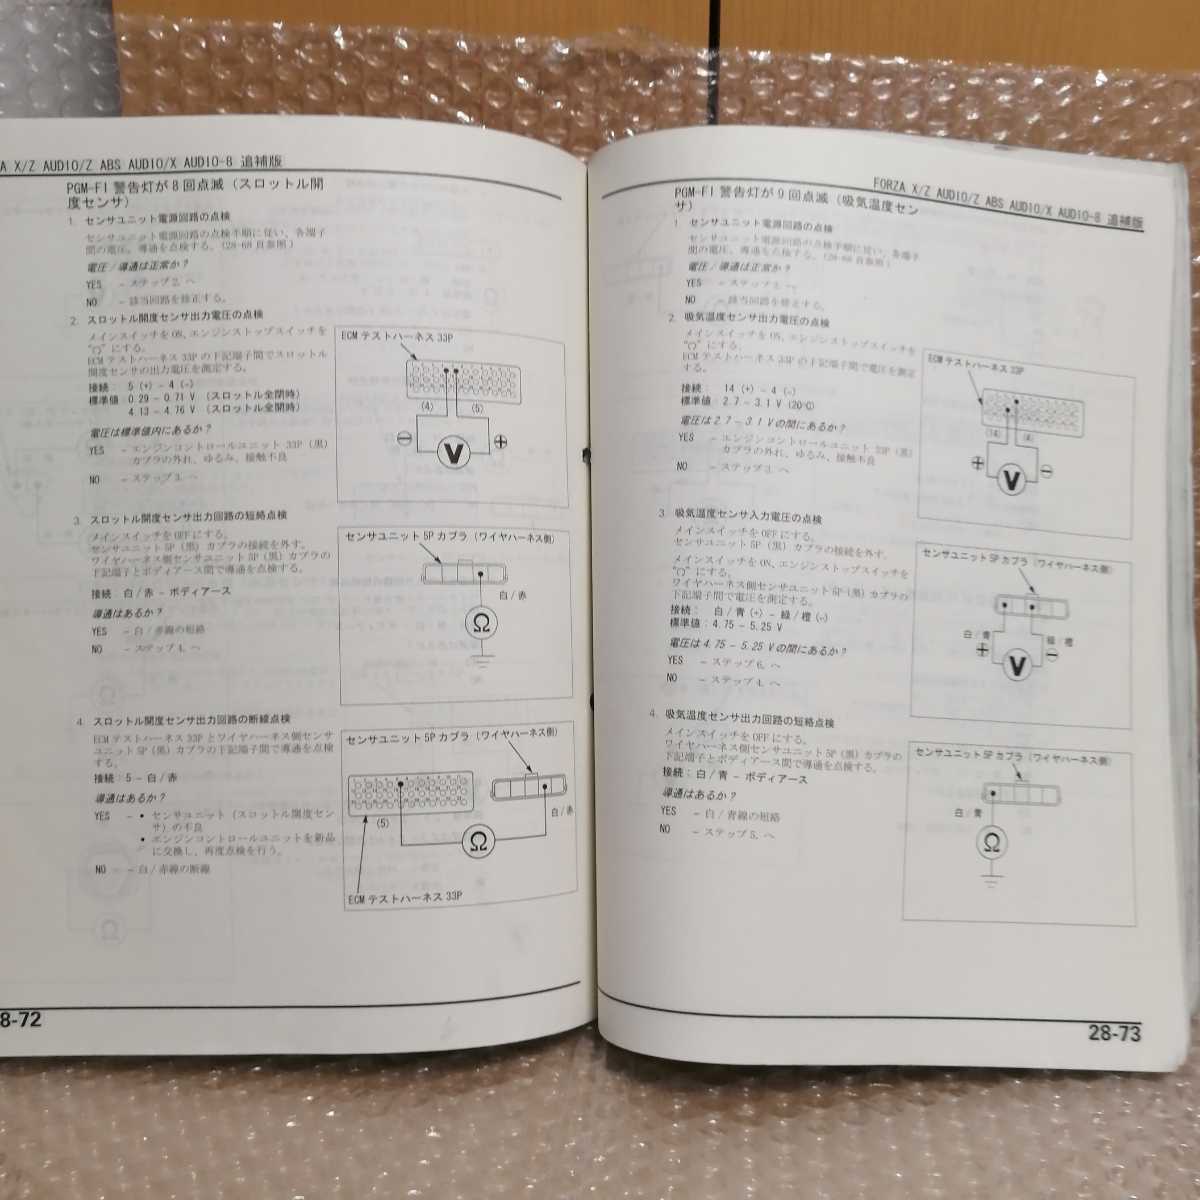 A X/Z AUDIO/Z ABS AUDIO/X AUDIO-8 追補版
PGM-FI 警告灯が 8 回点滅 (スロットル開
度センサ)
1. センサユニット電源回路の点検
センサユニット電源回路の点検手順に従い、各端子
間の電圧、導通を点検する。(28-68 頁参照)
電圧/導通は正常か?
YES – ステップ 2. へ
NO – 該当回路を修正する。
2. スロットル開度センサ出力電圧の点検
メインスイッチを ON、エンジンストップスイッチを
" " にする。
ECM テストハーネス 33P の下記端子間でスロットル
開度センサの出力電圧を測定する。
接続: 5 (+) – 4 (–)
標準値 0.29 – 0.71 V (スロットル全閉時)
4.13 – 4.76 V (スロットル全開時)
電圧は標準値内にあるか?
YES – エンジンコントロールユニット 33P (黒)
カプラの外れ、ゆるみ、接触不良
NO – ステップ 3. へ
ECM テストハーネス 33P
(4) (5)
⊖ V ⊕
3. スロットル開度センサ出力回路の短絡点検
メインスイッチを OFF にする。
センサユニット 5P (黒) カプラの接続を外す。
ワイヤハーネス側センサユニット 5P (黒) カプラの
下記端子とボディアース間で導通を点検する。
接続: 白/赤 – ボディアース
導通はあるか?
YES – 白/赤線の短絡
NO – ステップ 4. へ
センサユニット 5P カプラ (ワイヤハーネス側)
白/赤
Ω
4. スロットル開度センサ出力回路の断線点検
ECM テストハーネス 33P とワイヤハーネス側センサ
ユニット 5P (黒) カプラの下記端子間で導通を点検
する。
接続: 5 – 白/赤
導通はあるか?
YES – • センサユニット (スロットル開度セン
サ) の不良
• エンジンコントロールユニットを新品
に交換し、再度点検を行う。
NO – 白/赤線の断線
センサユニット 5P カプラ (ワイヤハーネス側)
(5)
白/赤
Ω
ECM テストハーネス 33P
8-72
FORZA X/Z AUDIO/Z ABS AUDIO/X AUDIO-8 追補版
PGM-FI 警告灯が 9 回点滅 (吸気温度セン
サ)
1. センサユニット電源回路の点検
センサユニット電源回路の点検手順に従い、各端子
間の電圧、導通を点検する。(28-68 頁参照)
電圧/導通は正常か?
YES – ステップ 2. へ
NO – 該当回路を修正する。
2. 吸気温度センサ出力電圧の点検
メインスイッチを ON、エンジンストップスイッチを
" " にする。
ECM テストハーネス 33P の下記端子間で電圧を測定
する。
接続: 14 (+) – 4 (–)
標準値: 2.7 – 3.1 V (20℃)
電圧は 2.7 – 3.1 V の間にあるか?
YES – エンジンコントロールユニット 33P (黒)
カプラの外れ、ゆるみ、接触不良
NO – ステップ 3. へ
ECM テストハーネス 33P
(14) (4)
⊕ V ⊖
3. 吸気温度センサ入力電圧の点検
メインスイッチを OFF にする。
センサユニット 5P (黒) カプラの接続を外す。
メインスイッチを ON、エンジンストップスイッチを
" " にする。
ワイヤハーネス側センサユニット 5P (黒) カプラの
下記端子間で電圧を測定する。
接続: 白/青 (+) – 緑/橙 (–)
標準値: 4.75 – 5.25 V
電圧は 4.75 – 5.25 V の間にあるか?
YES – ステップ 6. へ
NO – ステップ 4. へ
センサユニット 5P カプラ (ワイヤハーネス側)
白/青 緑/橙
⊕ V ⊖
4. 吸気温度センサ出力回路の短絡点検
メインスイッチを OFF にする。
ワイヤハーネス側センサユニット 5P (黒) カプラの
下記端子とボディアース間で導通を点検する。
接続: 白/青 – ボディアース
導通はあるか?
YES – 白/青線の短絡
NO – ステップ 5. へ
センサユニット 5P カプラ (ワイヤハーネス側)
白/青
Ω
28-73